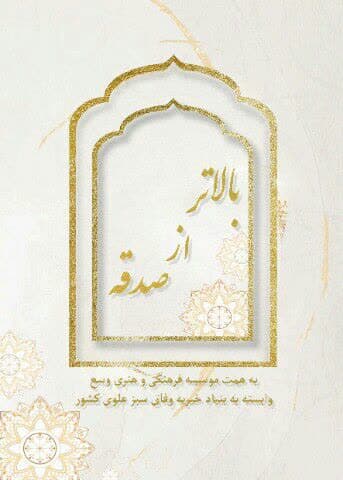 بالاتر
از
صدقه
به همت موسسه فرهنگی و هنری وسع
وابسته به بنیاد خیریه وفاق سبز علوی کشور